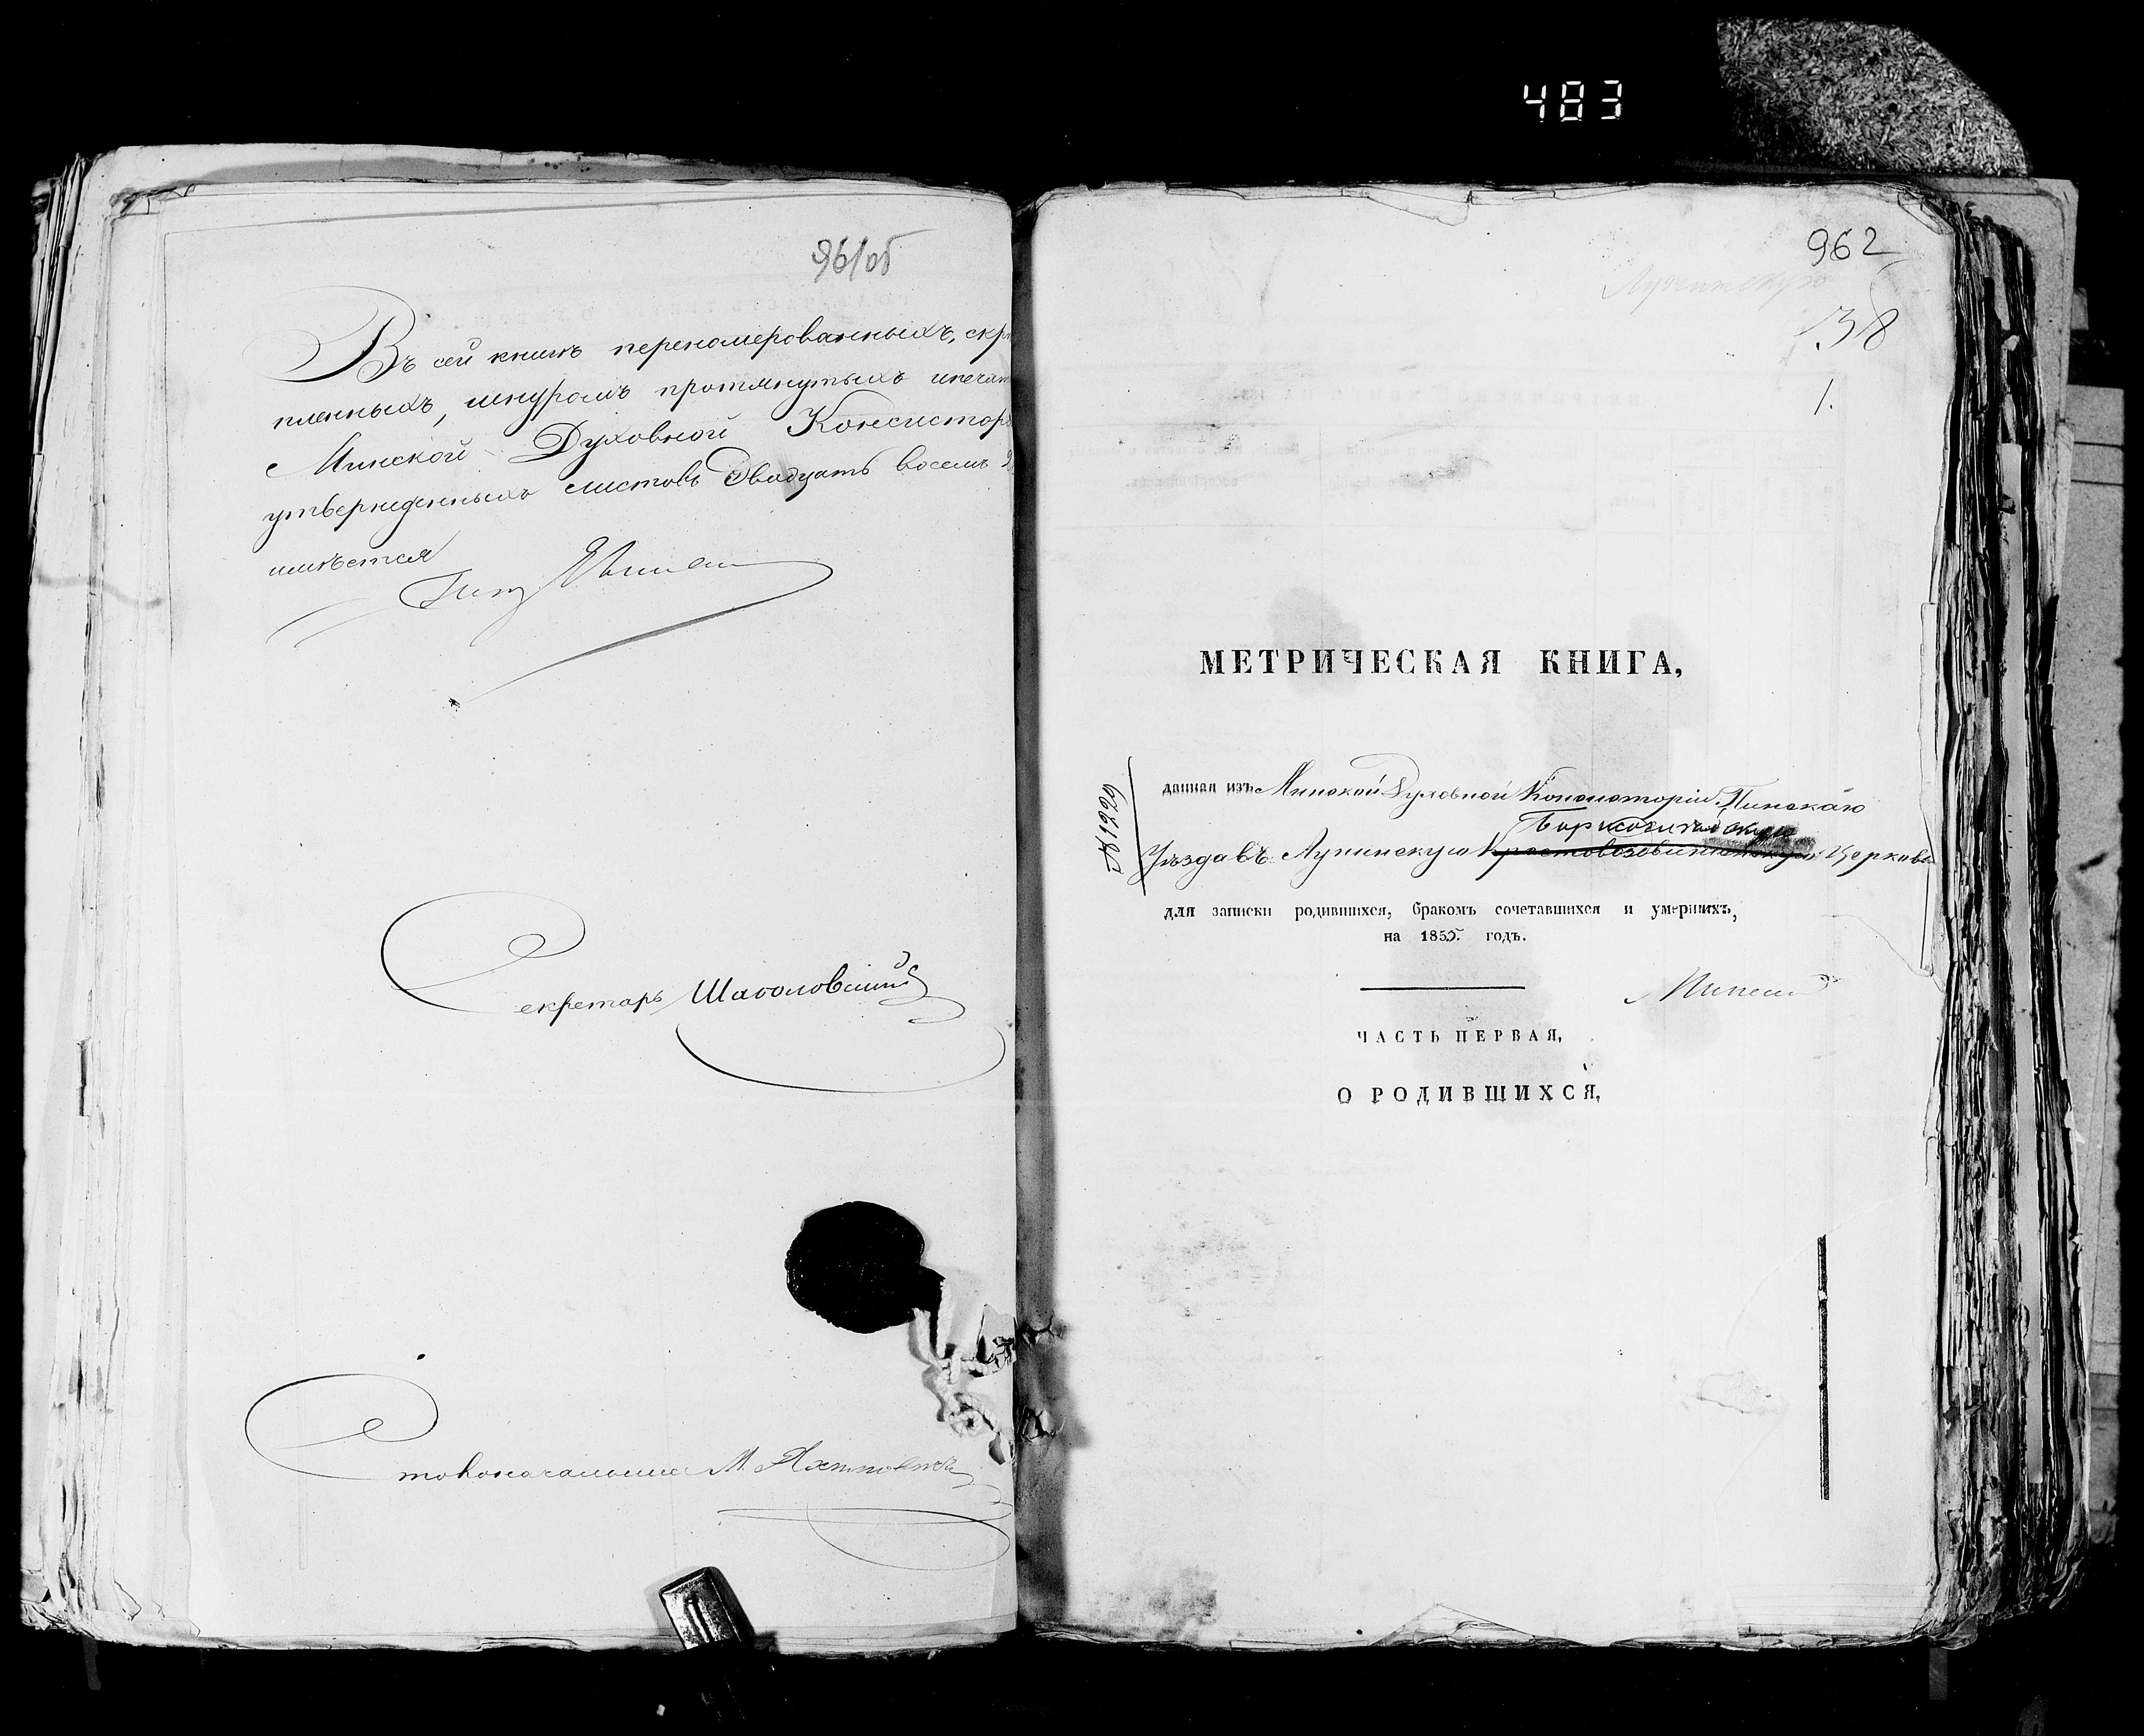 483
961об
Въ сей книгѣ перенумерованныхъ, скрѣ
пленныхъ, шнуромъ протянутыхъ и печат
Минской Духовной Консистор
утвержденныхъ листовъ двадцать восемь
имѣется
Секретарь
Столоначальникъ М.
962
Лунинскую
38
1.
МЕТРИЧЕСКАЯ КНИГА,
№ 1229
данная изъ Минской Духовной Консисторіи Пинскаго
Борисоглѣбскую
Уѣзда въ Лунинскую Крестовоздвиженскую Церковь
для записки родившихся, бракомъ сочетавшихся и умершихъ,
на 1855. годъ.
ЧАСТЬ ПЕРВАЯ,
О РОДИВШИХСЯ,